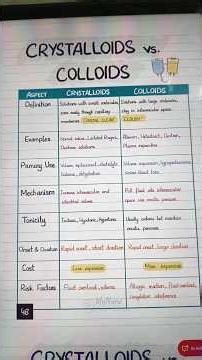 CRYSTALLOIDS vs.
COLLOIDS
ASPECT CRYSTALLOIDS COLLOIDS
Definition Solutions with small molecules, Solutions with large molecules,
"CRYSTAL CLEAR" "CLOUDY"
Examples Normal saline, Lactated Ringer's, Albumin, Hetastarch, Dextran,
Dextrose solutions Plasma expanders
Primary Use Volume replacement, electrolyte Volume expansion,
balance, dehydration severe blood loss
Mechanism Increase intravascular and Pull fluid into intravascular
interstitial volume space via oncotic pressure
Tonicity Isotonic, Hypotonic, Hypertonic Usually isotonic but maintain
oncotic pressure
Onset & Duration Rapid onset, short duration Rapid onset, longer duration
Cost Less expensive More expensive
Risk Factors Fluid overload, edema Allergic reaction, fluid overload,
48
CRYSTALLOIDS vs